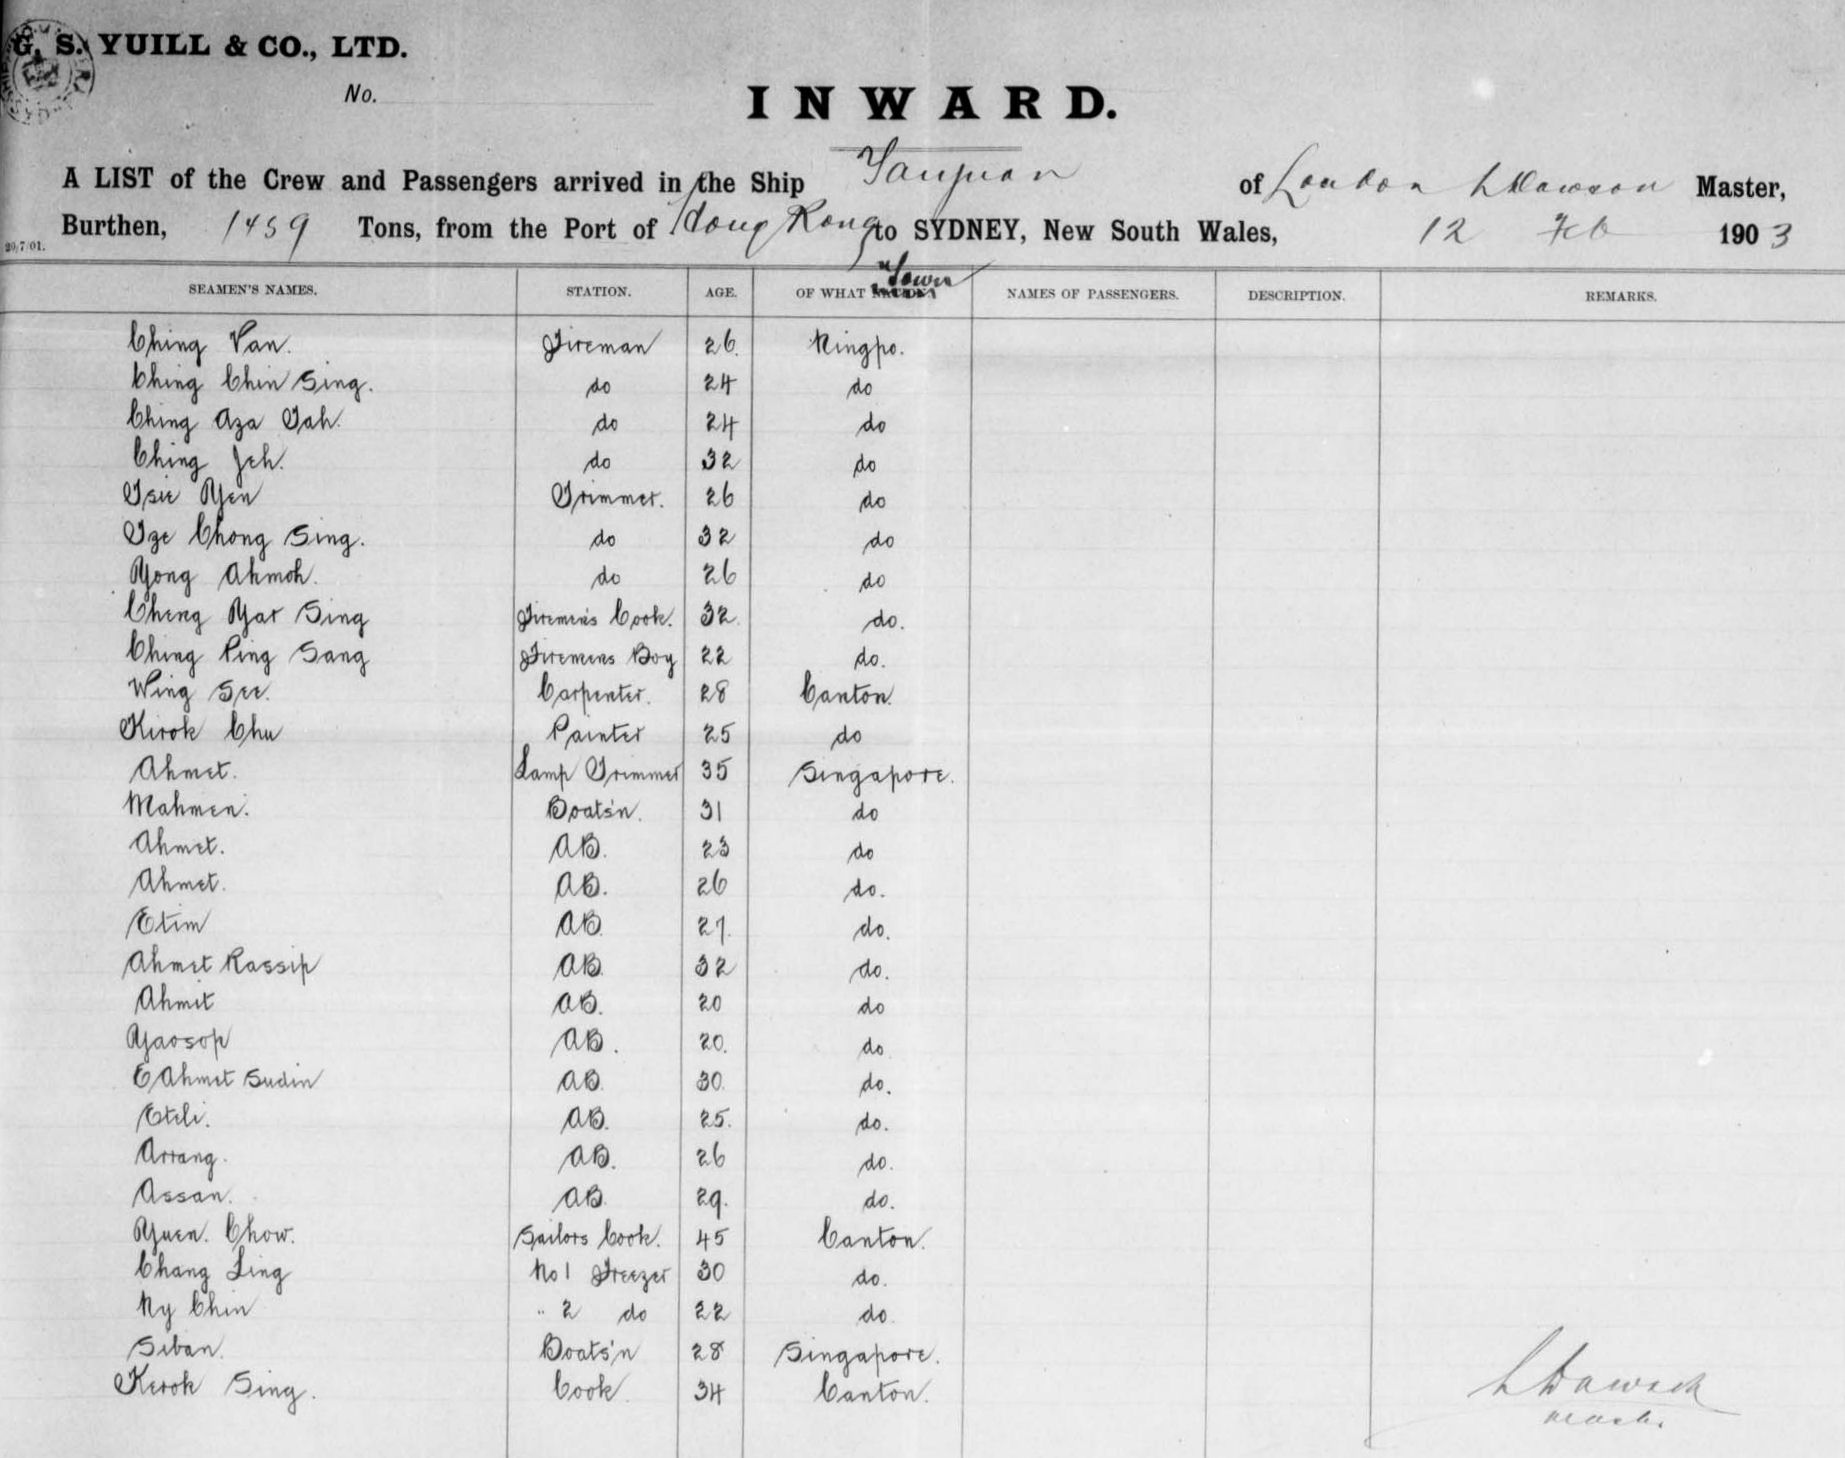 G. S. YUILL & CO., LTD.
No.
INWARD.
A LIST of the Crew and Passengers arrived in the Ship Taiyuan of London L Dawson Master,
Burthen, 1459 Tons, from the Port of Hong Kong to SYDNEY, New South Wales, 12 Feb 1903
20/7/01.
SEAMEN'S NAMES. STATION. AGE. OF WHAT Town NAMES OF PASSENGERS. DESCRIPTION. REMARKS.
Ching Van. Fireman 26. Ningpo.
Ching Chin Sing. do 24 do
Ching Aza Tah. do 24 do
Ching Jeh. do 32 do
Tsie Yen Trimmer. 26 do
Tze Chong Sing. do 32 do
Yong Ahmoh. do 26 do
Cheng Yar Sing Firemen's Cook. 32. do.
Ching Ping Sang Firemens Boy 22 do.
Wing See. Carpenter. 28 Canton.
Kwok Chu Painter 25 do
Ahmet. Lamp Trimmer 35 Singapore.
Mahmen. Boats'n. 31 do
Ahmet. AB. 23 do
Ahmet. AB. 26 do.
Etim AB. 27. do.
Ahmet Rassip AB. 32 do.
Ahmit AB. 20 do
Yaosop AB. 20. do
E Ahmet Sudin AB. 30. do.
Eteli. AB. 25. do.
Arrang. AB. 26 do.
Assan. AB. 29. do.
Yuen. Chow. Sailors Cook. 45 Canton.
Chang Ling No 1 Freezer 30 do.
Ny Chin " 2 do 22 do.
Seban. Boats'n 28 Singapore.
Kwok Sing. Cook 34 Canton.
L Dawson
Master